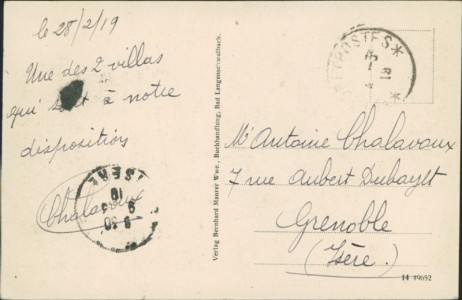 le 28/2/19
Une des 2 villas
qui sont à notre
disposition
Chalavoux
ISERE
Verlag Bernhard Maurer Wwe., Buchhandlung, Bad Langenschwalbach.
POSTES *
Mr Antoine Chalavoux
7 rue Aubert Dubayet
Grenoble
(Isère)
14 19652